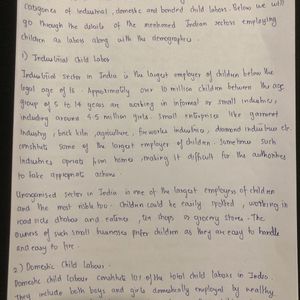 Categories of industrial, domestic and bonded child labors. Below we will
go through the details of the mentioned Indian sectors employing
children as labors along with the demographics.
1) Industrial Child Labor
Industrial sector in India is the largest employer of children below the
legal age of 18. Approximately over 10 million children between the age
group of 5 to 14 years are working in informal or small industries,
including around 4.5 million girls. Small enterprises like garment
industry, brick kiln, agriculture, fireworks industries, diamond industries etc.
constitute some of the largest employer of children. Sometimes such
industries operate from homes, making it difficult for the authorities
to take appropriate actions.
Unorganised sector in India is one of the largest employers of children
and the most visible too. Children could be easily spotted, working in
road side dhabas and eateries, tea shops or grocery stores. The
owners of such small businesses prefer children as they are easy to handle
and easy to fire.
2) Domestic Child Labour.
Domestic child labour constitute 10% of the total child labors in India.
They include both boys and girls domestically employed by wealthy